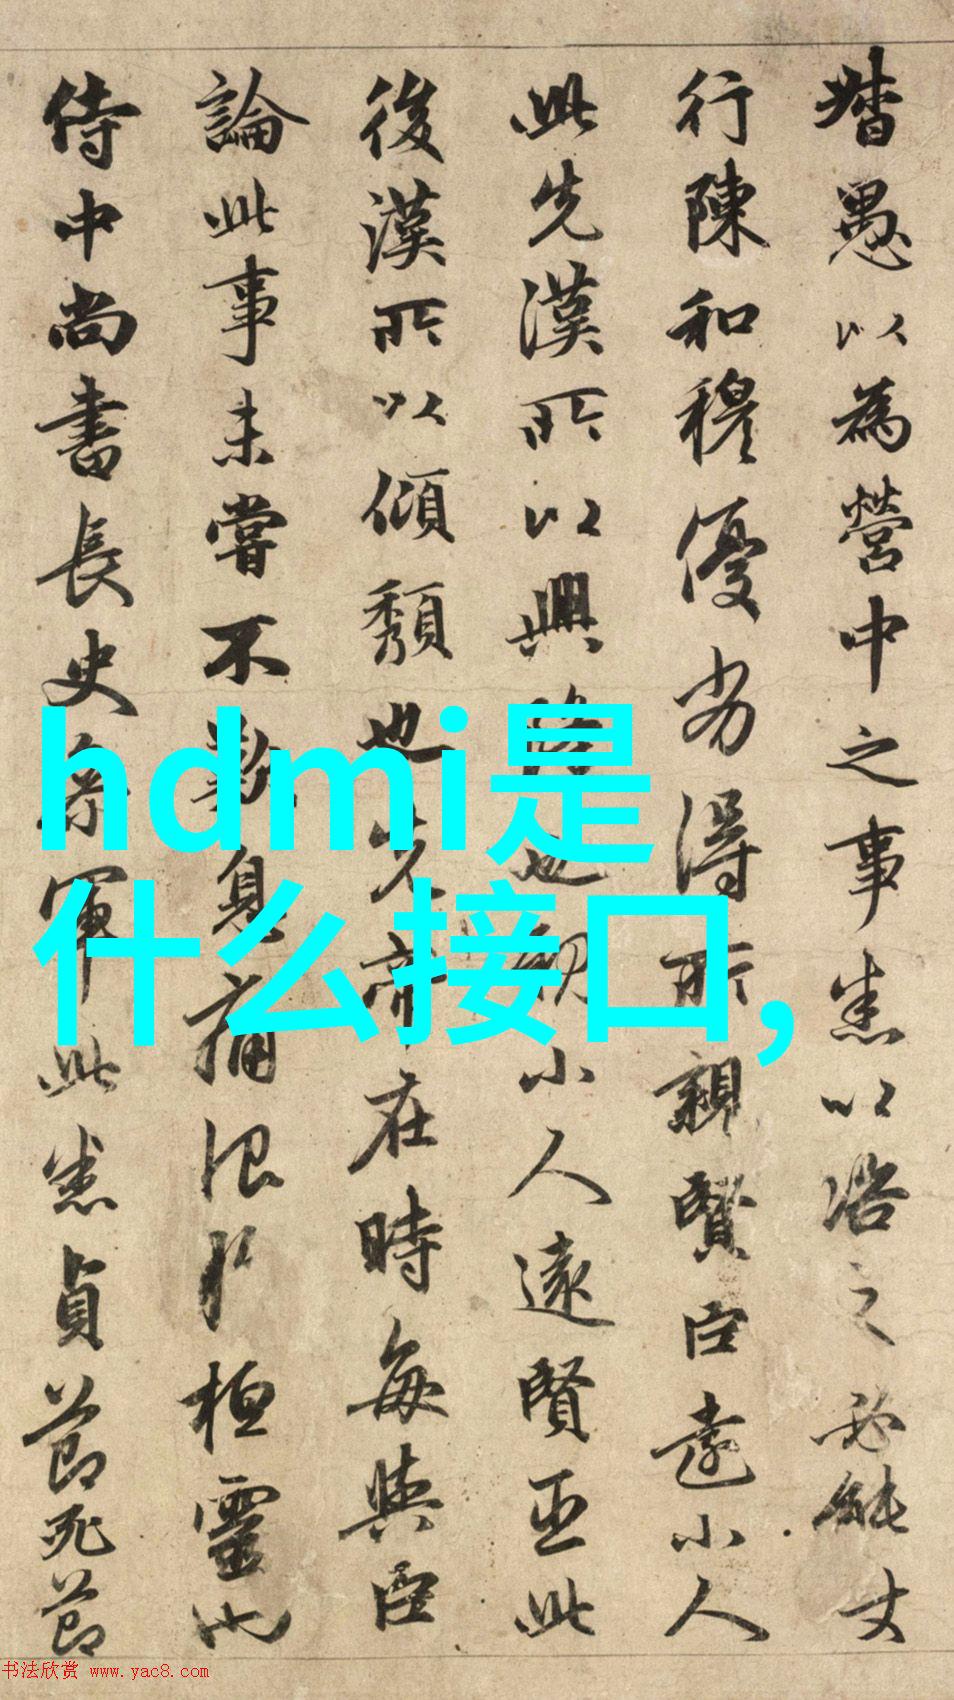 督愚以為營中之事悉以咨之必能使
行陳和穆優劣得所親賢臣遠小人
此先漢所以興隆也親小人遠賢臣此
後漢所以傾頹也先帝在時每與臣
論此事未嘗不歎息痛恨於桓靈也
侍中尚書長史參軍此悉貞節死節
hdmi是
什么接口,
书法欣赏 www.yac8.com